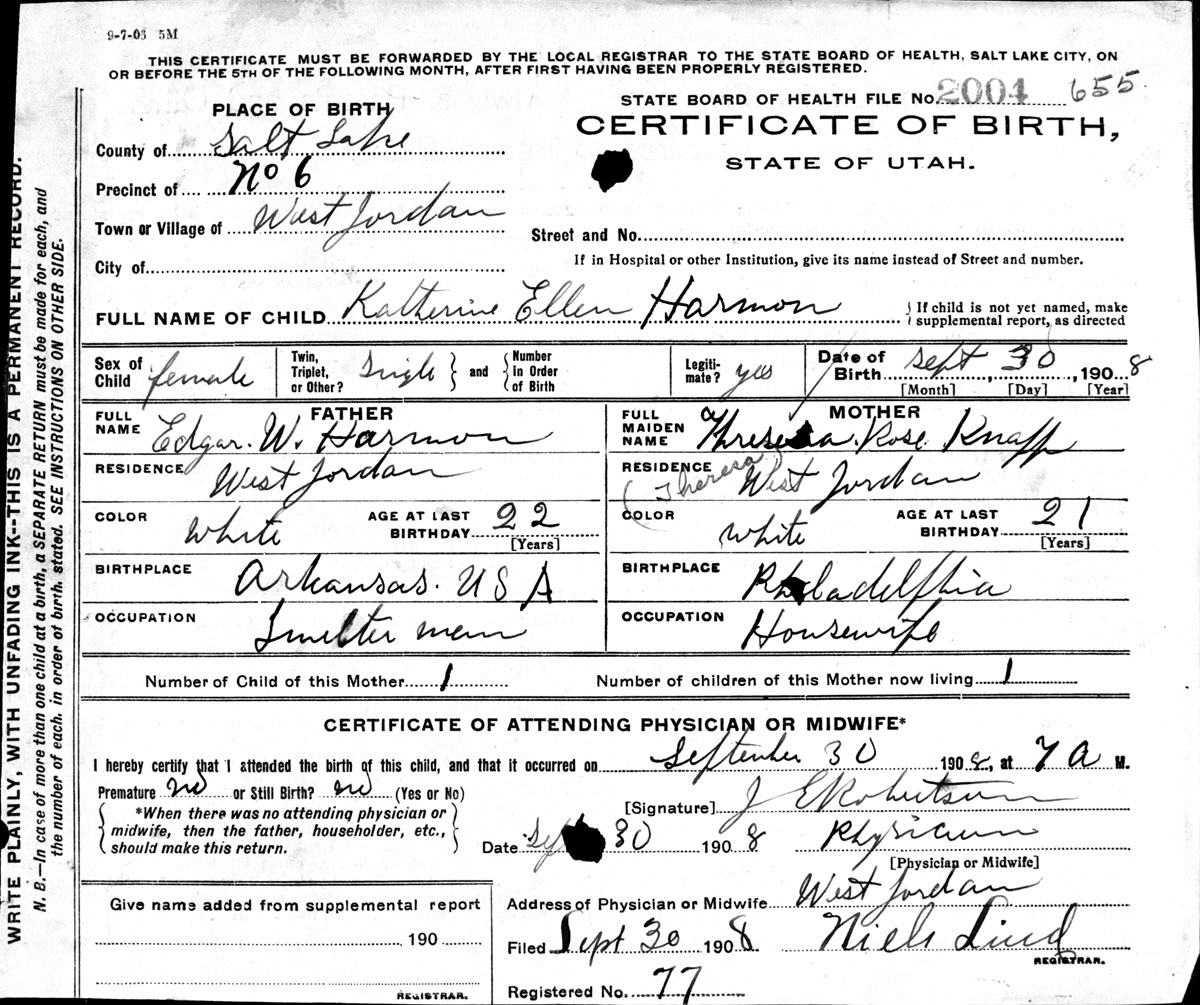 9-7-03 5M
THIS CERTIFICATE MUST BE FORWARDED BY THE LOCAL REGISTRAR TO THE STATE BOARD OF HEALTH, SALT LAKE CITY, ON
OR BEFORE THE 5TH OF THE FOLLOWING MONTH, AFTER FIRST HAVING BEEN PROPERLY REGISTERED.
STATE BOARD OF HEALTH FILE No. 2004 655
CERTIFICATE OF BIRTH,
STATE OF UTAH.
PLACE OF BIRTH
County of Salt Lake
Precinct of No 6
Town or Village of West Jordan
Street and No.
City of
If in Hospital or other Institution, give its name instead of Street and number.
FULL NAME OF CHILD Katherine Ellen Harmon
If child is not yet named, make
supplemental report, as directed
Sex of Child female
Twin, Triplet, or Other? Single and Number In Order of Birth
Legiti-mate? yes
Date of Birth Sept 30, 1908
[Month] [Day] [Year]
FATHER
FULL NAME Edgar. W. Harmon
RESIDENCE West Jordan
COLOR White AGE AT LAST BIRTHDAY 22
[Years]
BIRTHPLACE Arkansas. U S A
OCCUPATION Smelter man
MOTHER
FULL MAIDEN NAME Rose Knapp
(Theresa
RESIDENCE West Jordan
COLOR White AGE AT LAST BIRTHDAY 21
[Years]
BIRTHPLACE Philadelfhia
OCCUPATION Housewife
Number of Child of this Mother 1 Number of children of this Mother now living 1
CERTIFICATE OF ATTENDING PHYSICIAN OR MIDWIFE*
I hereby certify that I attended the birth of this child, and that it occurred on September 30 1908, at 7 a M.
Premature no or Still Birth? no (Yes or No)
*When there was no attending physician or
midwife, then the father, householder, etc.,
should make this return.
[Signature] J E Robertson
Date 30 1908 Physician
[Physician or Midwife]
Address of Physician or Midwife West Jordan
Filed Sept 30 1908 Niels Lind
REGISTRAR.
Registered No. 77
Give name added from supplemental report
190
REGISTRAR.
WRITE PLAINLY, WITH UNFADING INK--THIS IS A PERMANENT RECORD.
N. B.—In case of more than one child at a birth, a SEPARATE RETURN must be made for each, and
the number of each, in order of birth, stated. SEE INSTRUCTIONS ON OTHER SIDE.